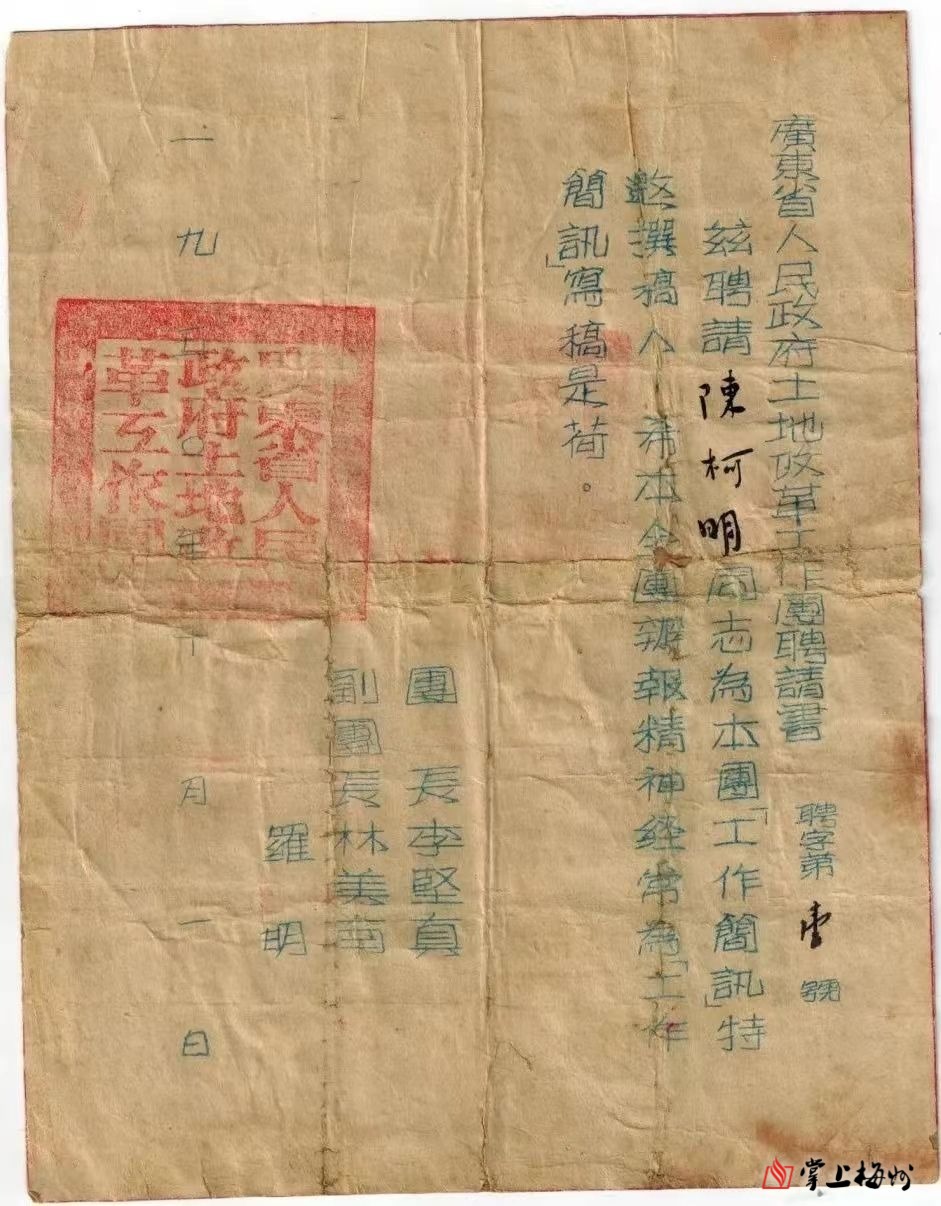 廣東省人民政府土地改革工作團聘請書
聘字第壹號
茲聘請陳柯明同志為本團「工作簡訊」特
邀撰稿人希本全團辦報精神經常為「工作
簡訊」寫稿是荷。
團 長李堅真
副團長林美南
羅 明
一九五〇年十月一日
廣東省人民
政府土地改
革工作團
掌上梅州